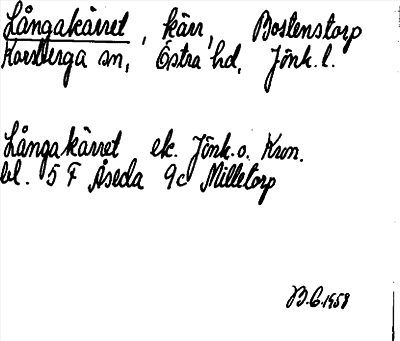 Långakärret, kärr, Bostenstorp
Korsberga sn, Östra hd, Jönk. l.
Långakärret ek. Jönk. o. Kron.
bl. 5 F Åseda 9c Milletorp
B.G. 1958